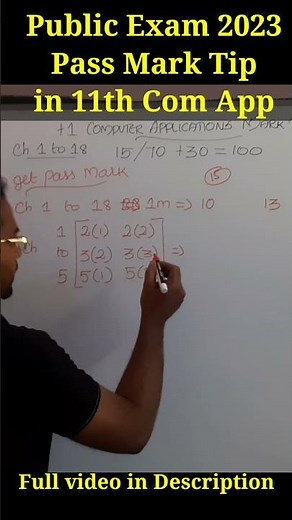 Public Exam 2023
Pass Mark Tip
in 11th Com App
+1 COMPUTER APPLICATIONS
Ch 1 to 18 15/70 +30 = 100
get pass Mark 15
Ch 1 to 18 1m => 10 13
1 2(1) 2(2)
to 3(2) 3(3) =>
5 5(1) 5(
Full video in Description